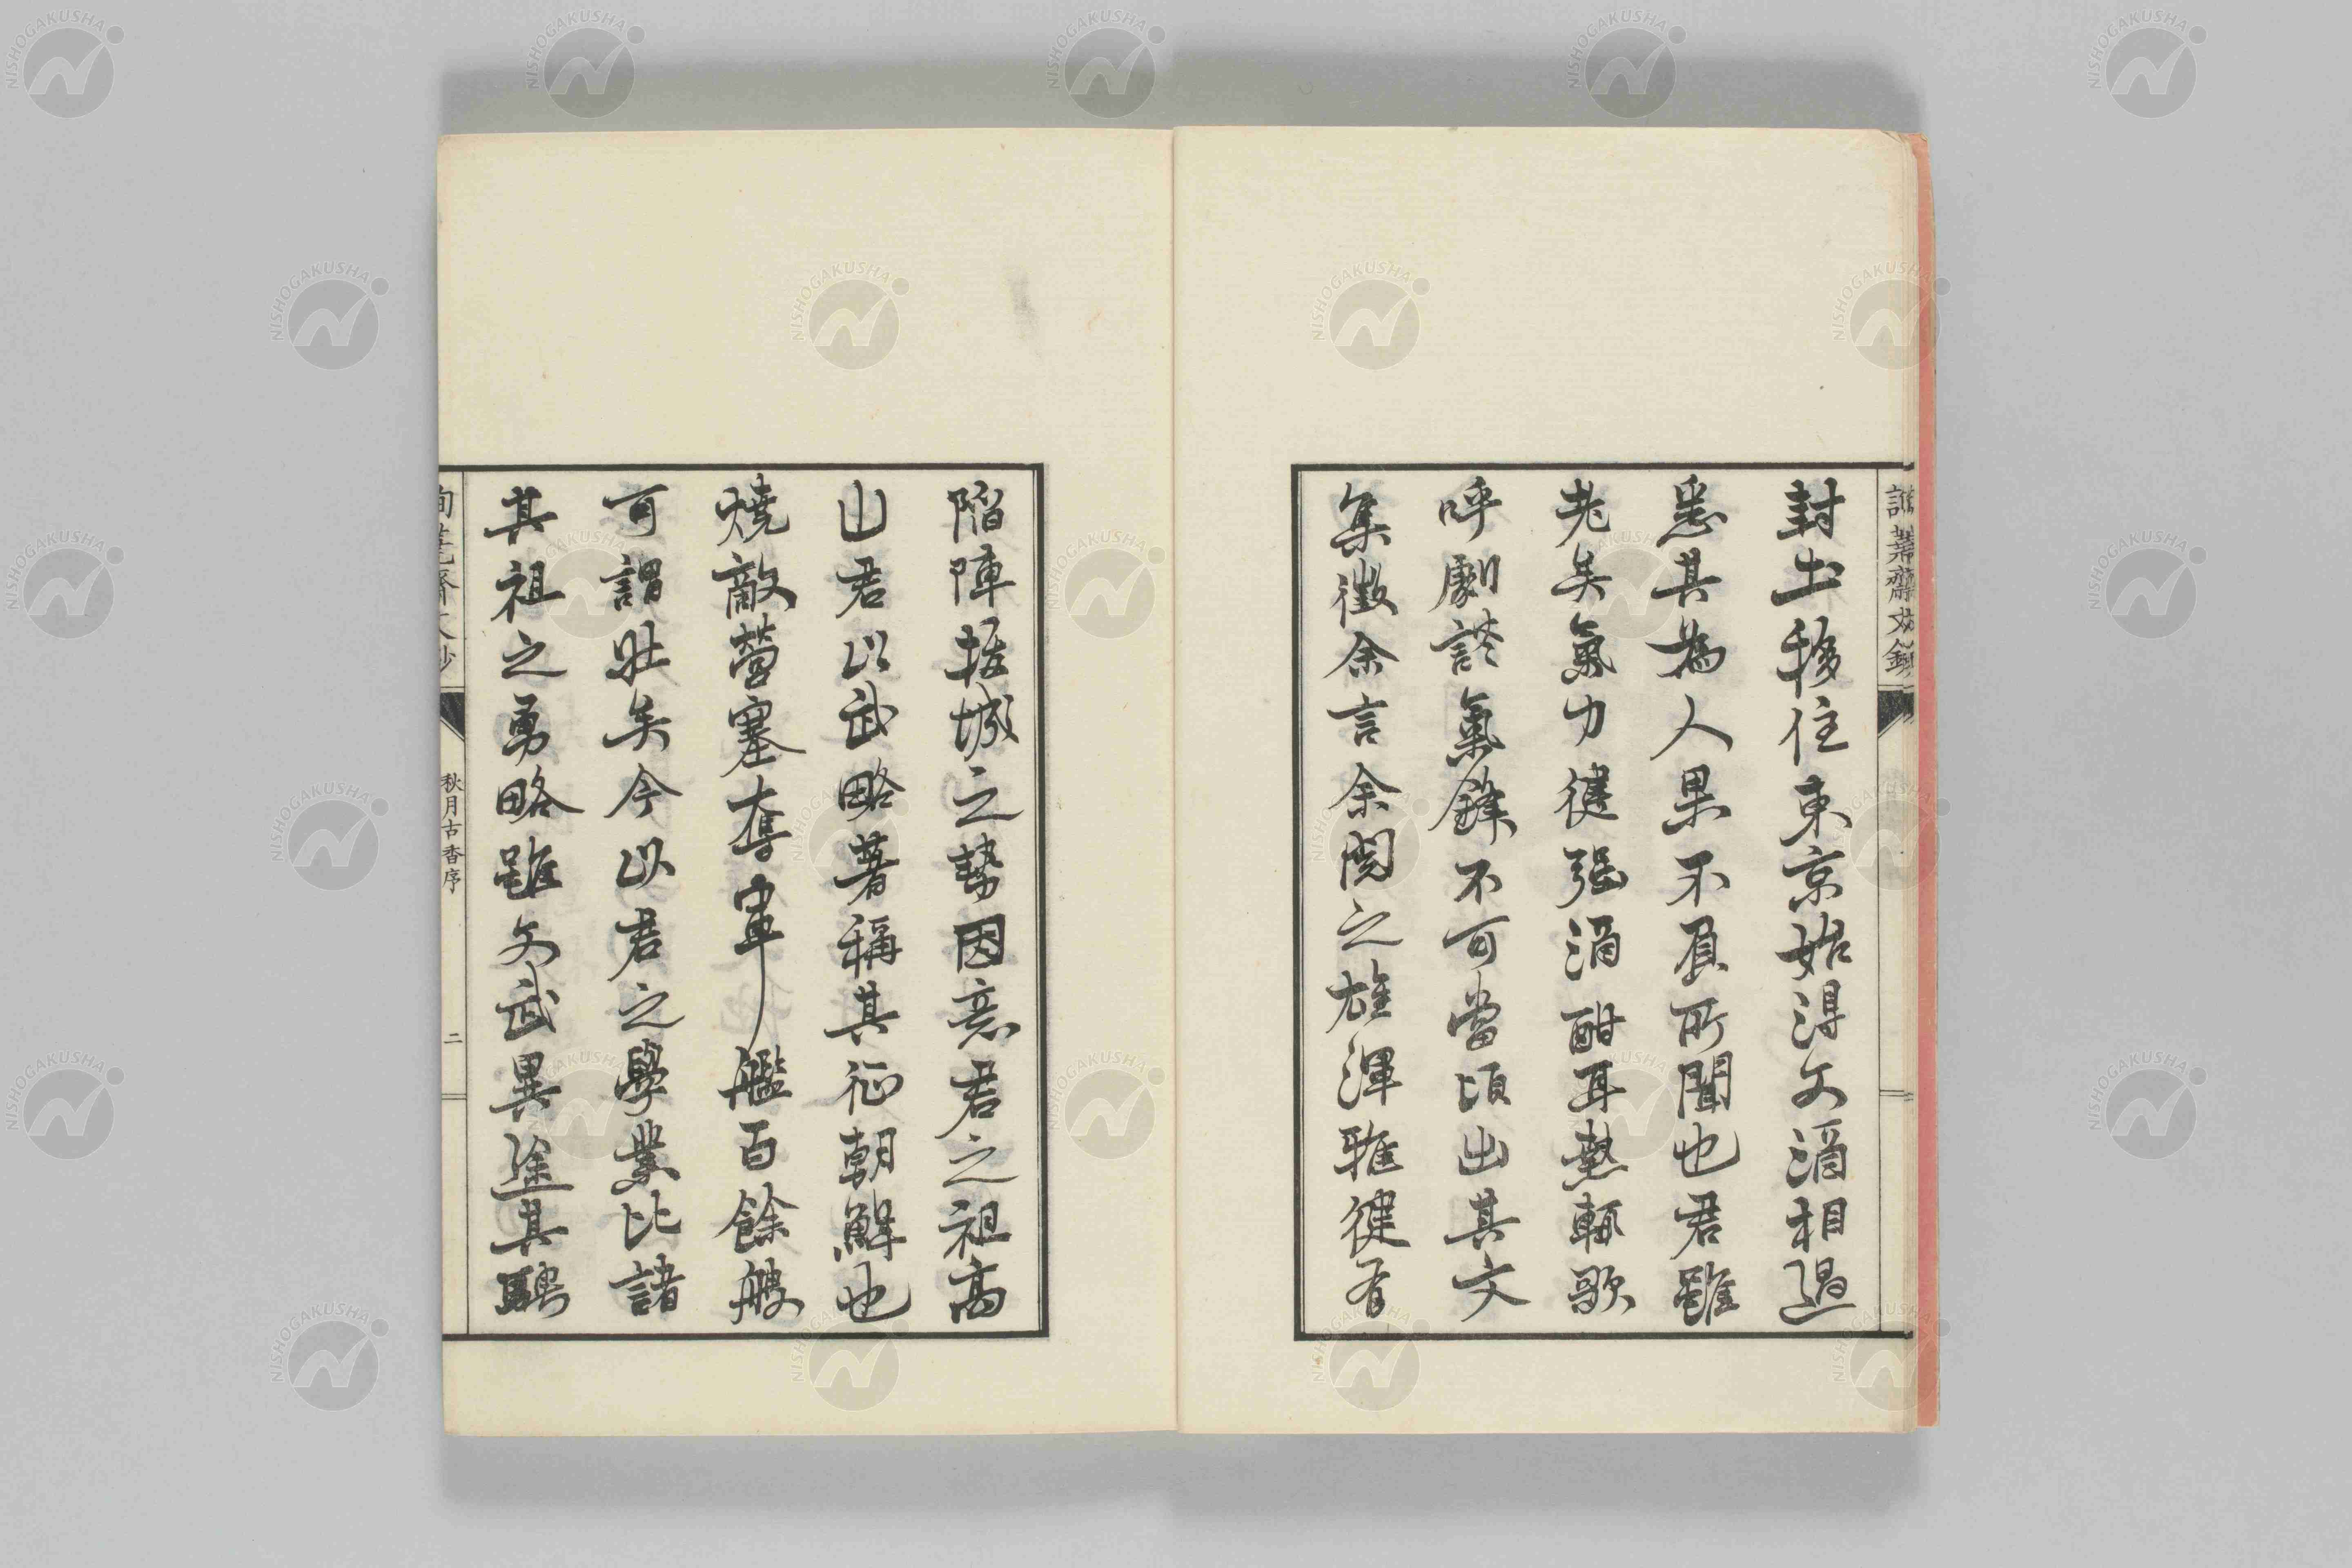 封土移住東京始得文酒相過
悉其為人果不負所聞也君雖
老矣氣力健强酒酣耳熱輙歌
呼劇談氣鋒不可當頃出其文
集徴余言余閲之雄渾雅健有
陷陣拔城之勢因意君之祖高
山君以武略著稱其征朝鮮也
燒敵營塞奪軍艦百餘艘
可謂壯矣今以君之學業比諸
其祖之勇略雖文武異途其騁
秋月古香序
二